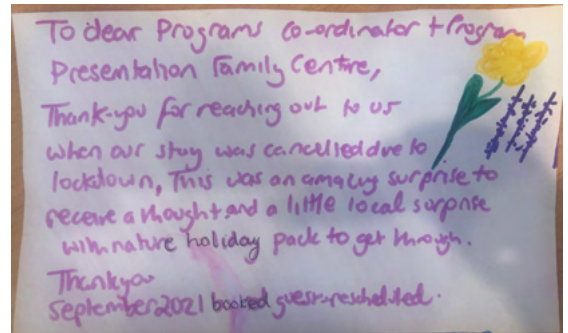 To dear Programs co-ordinator + Program
Presentation Family Centre,
Thank-you for reaching out to us
when our stay was cancelled due to
lockdown, This was an amazing surprise to
receive a thought and a little local surprise
with nature holiday pack to get through.
Thankyou
September 2021 booked guest-rescheduled.